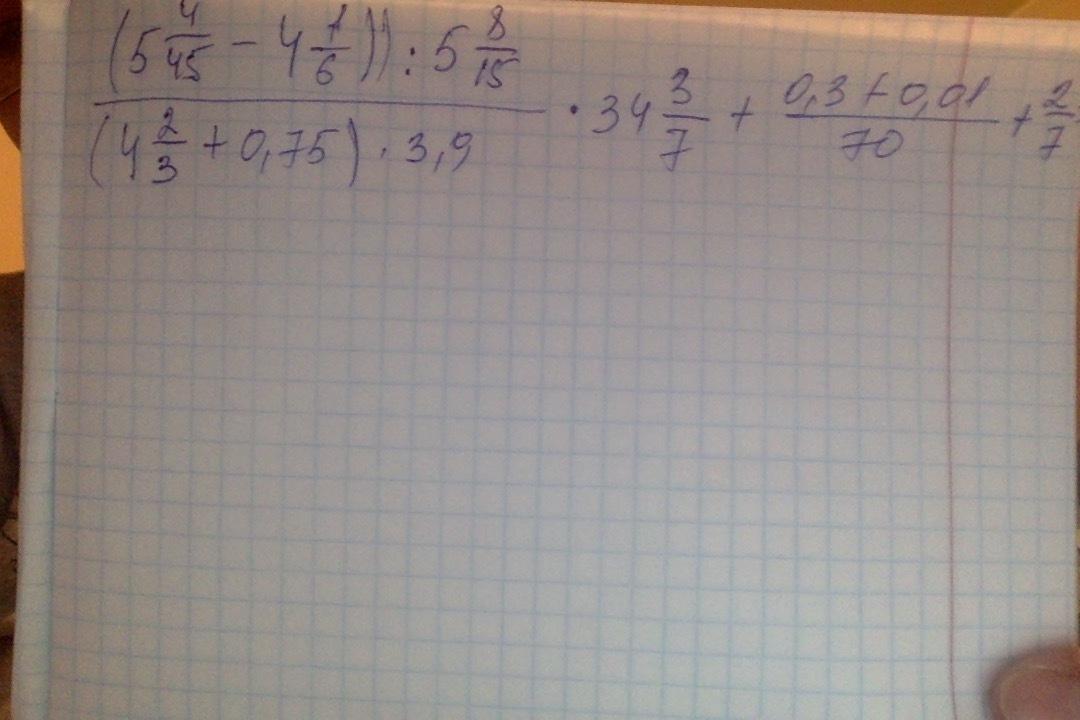 (5 4/45 − 4 1/6)) : 5 8/15
(4 2/3 + 0,75) · 3,9
· 34 3/7 + (0,3 + 0,01)/70 + 2/7